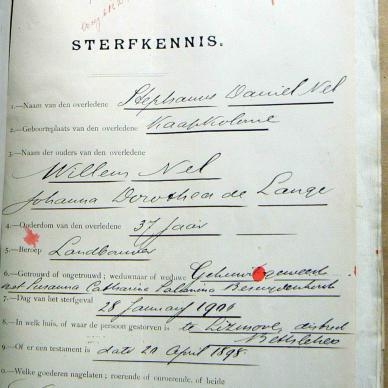 STERFKENNIS.
1.—Naam van den overledene Stephanus Daniel Nel
2.—Geboorteplaats van den overledene Kaapkolonie
3.—Naam der ouders van den overledene
Willem Nel
Johanna Dorothea de Lange
4.—Ouderdom van den overledene 37 jaar
5.—Beroep Landbouwer
6.—Getrouwd of ongetrouwd; weduwnaar of weduwe
met Susanna Catharina Bezuidenhout
7.—Dag van het sterfgeval 28 January
8.—In welk huis, of waar de persoon gestorven is te district
Bethlehem
9.—Of er een testament is date April 1898
—Welke goederen nagelaten; roerende of onroerende, of beide